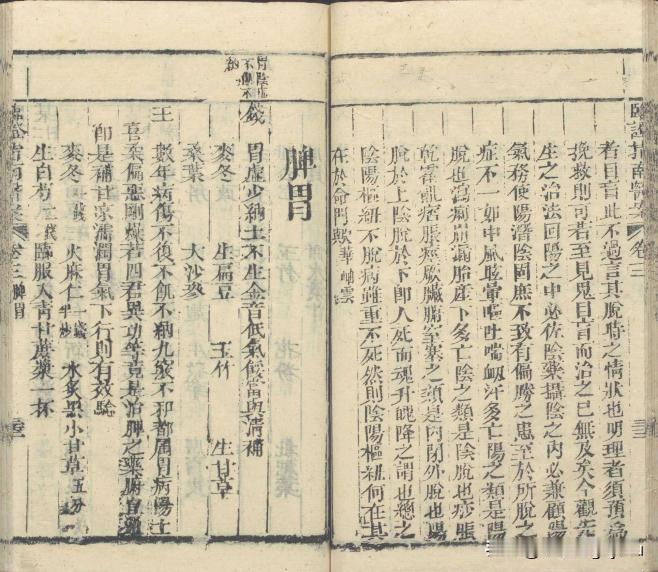 臨證指南醫案 卷三
者目盲此不過言其脫時之情狀也明理者須預為
挽救則可若至見鬼目盲而治之已無及矣今觀先
生之治法回陽之中必佐陰藥攝陰之內必兼顧陽
氣務使陽潛陰固庶不致有偏勝之患至於所脫之
症不一如中風眩暈嘔吐喘衂汗多亡陽之類是陽
脫也瀉痢崩漏胎產下多亡陰之類是陰脫也痧脹
乾霍亂痞脹痙厥臟腑窒塞之類是內閉外脫也陽
脫於上陰脫於下即人死而魂升魄降之謂也總之
陰陽樞紐不脫病雖重不死然則陰陽樞紐何在其
在於命門歟華岫雲
脾胃
胃陰虛不飢不納
錢 胃虛少納土不生金音低氣餒當與清補
麥冬 生扁豆 玉竹 生甘草
桑葉 大沙參
王 數年病傷不復不飢不納九竅不和都屬胃病陽土
喜柔偏惡剛燥若四君異功等竟是治脾之藥腑宜通
即是補甘涼濡潤胃氣下行則有效驗
麥冬一錢 火麻仁一錢半炒 水炙黑小甘草五分
生白芍二錢 臨服入青甘蔗漿一杯
臨證指南醫案 卷三 脾胃